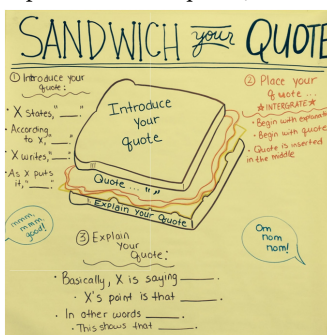 SANDWICH your QUOTE
① Introduce your
quote:
• X states,"___."
• According
to X,"___."
• X writes,"___."
• As X puts
it, "___."
Introduce
Your
quote
Quote... "..."
Explain Your Quote
② Place your
quote...
☆INTERGRATE☆
• Begin with explanation
• Begin with quote
• Quote is inserted
in the middle
mmm,
mmm,
good!
Om
nom
nom!
③ Explain
Your
Quote:
• Basically, X is saying ____.
• X's point is that ____.
• In other words ____.
• This shows that ____.